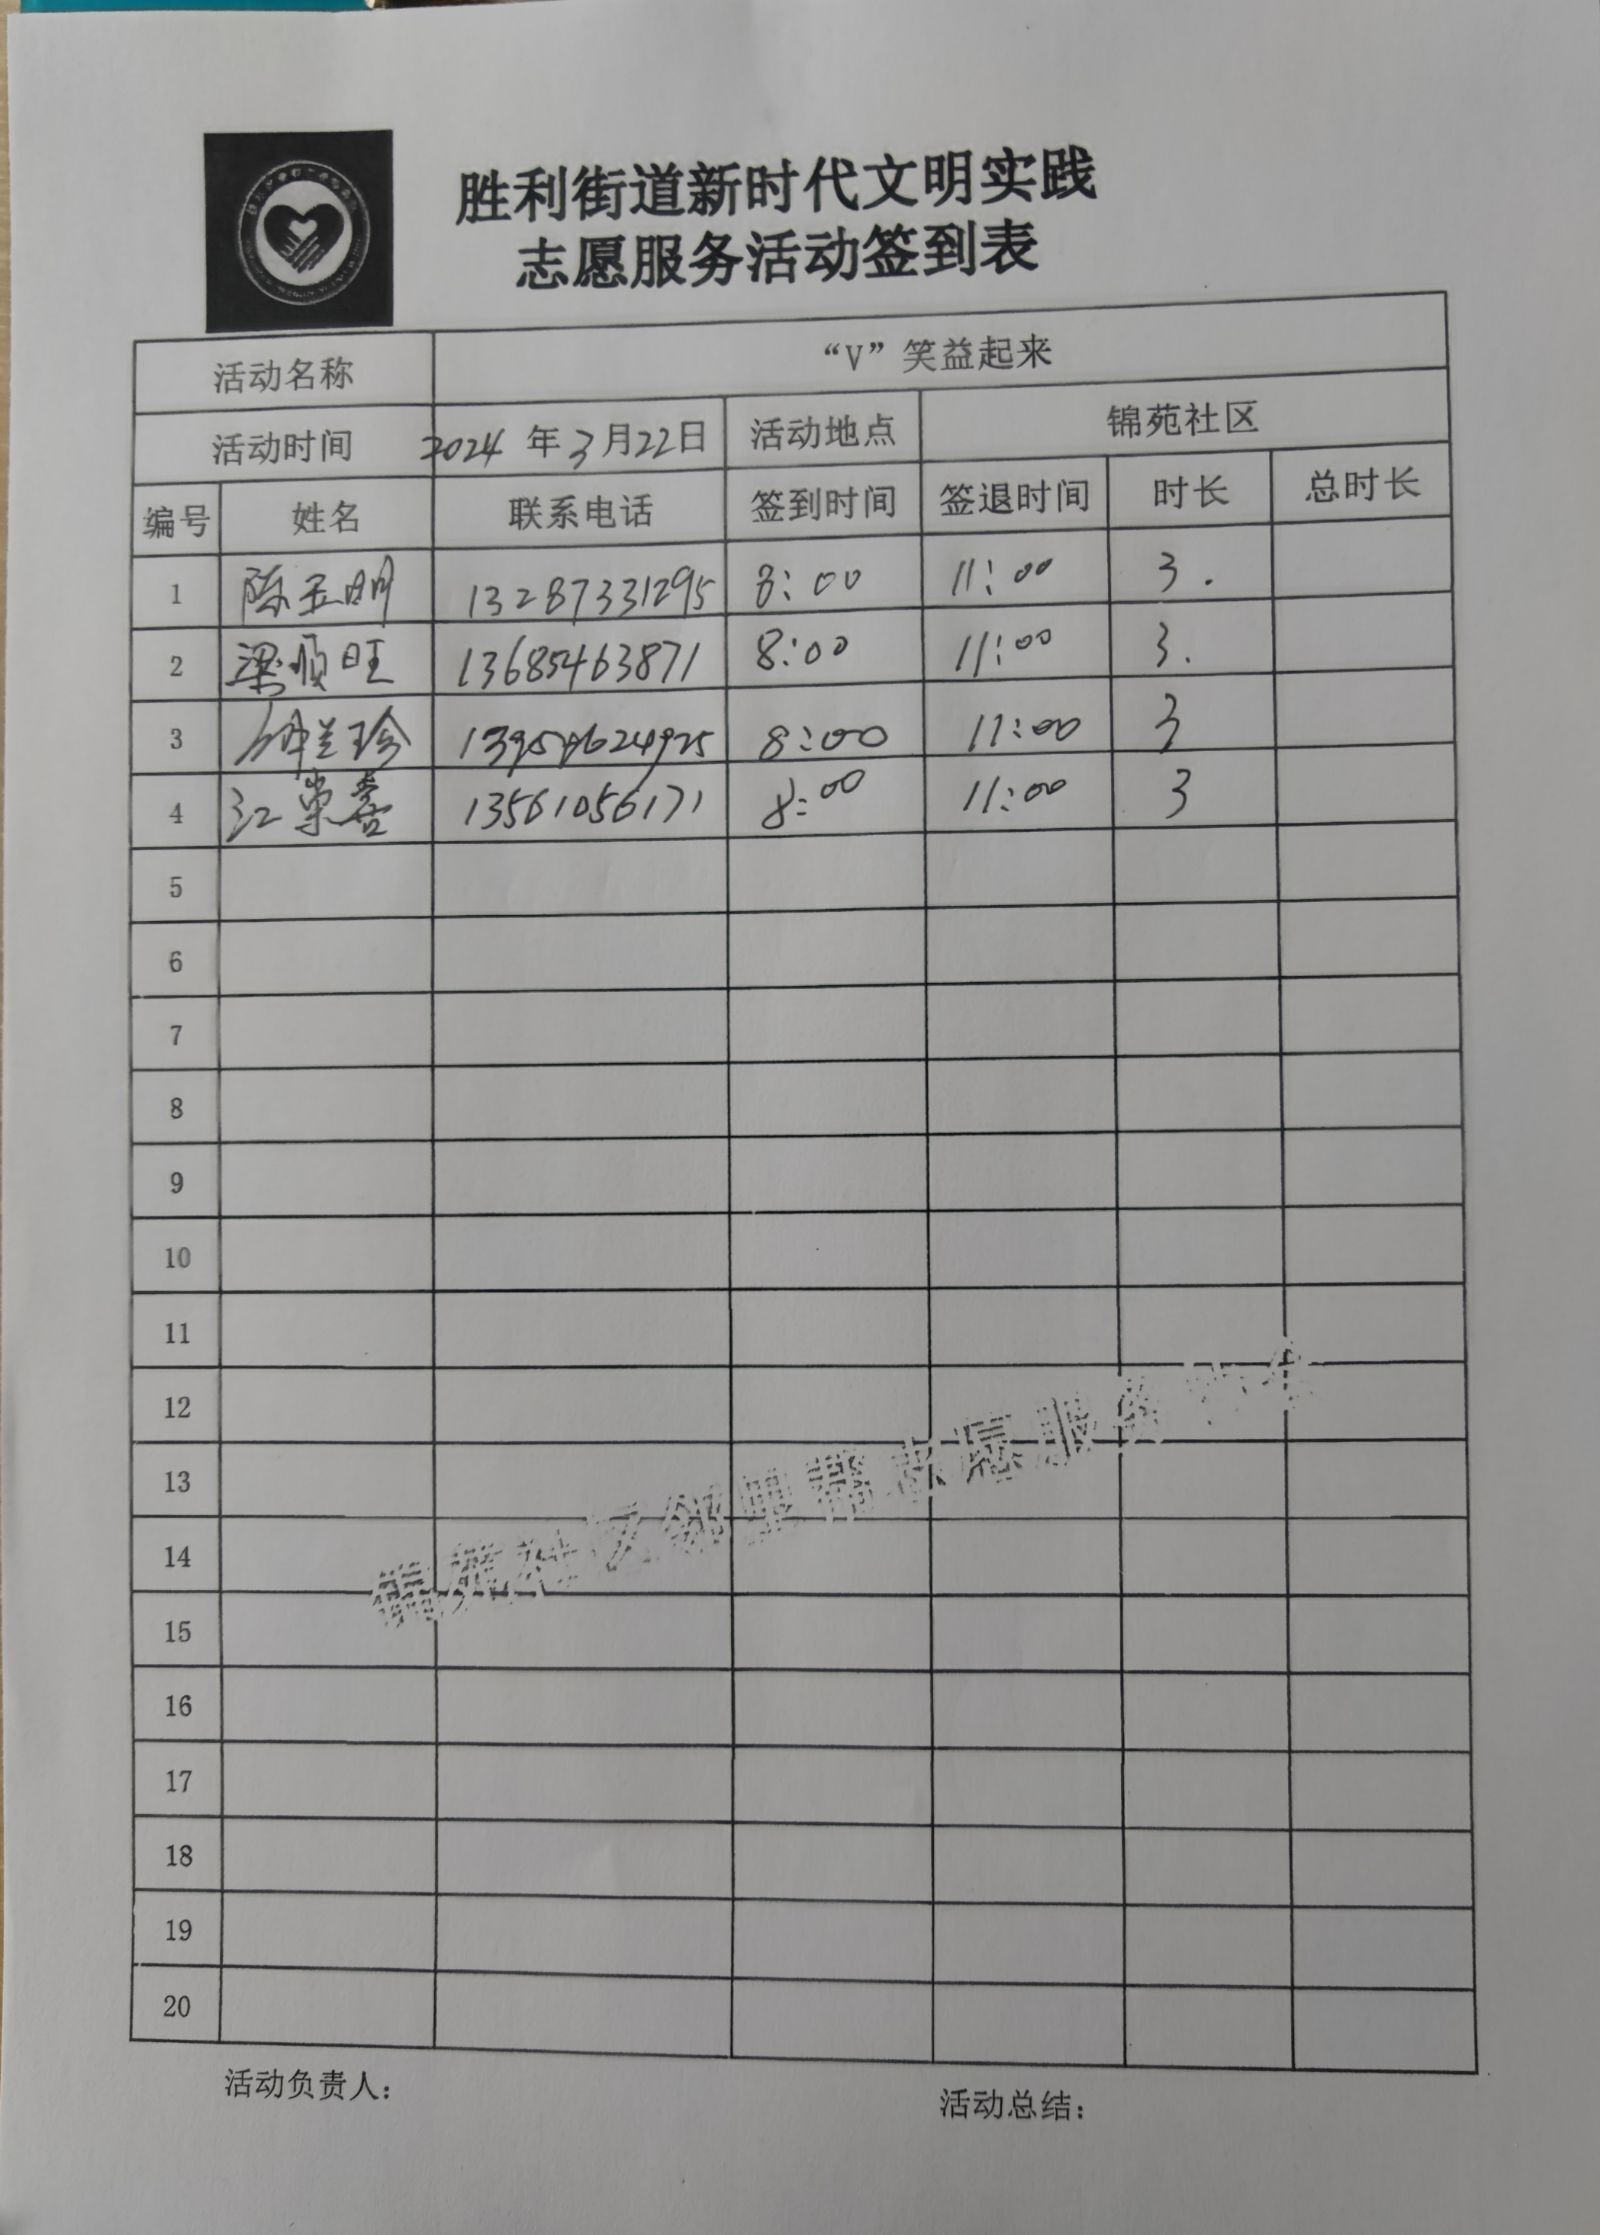 胜利街道新时代文明实践
志愿服务活动签到表
活动名称 “V”笑益起来
活动时间 2024 年 3 月 22 日 活动地点 锦苑社区
编号 姓名 联系电话 签到时间 签退时间 时长 总时长
1 陈玉明 13287331295 8:00 11:00 3.
2 梁顺旺 13685463871 8:00 11:00 3.
3 钟兰珍 8:00 11:00 3
4 江 13561056171 8:00 11:00 3
5
6
7
8
9
10
11
12
13
14
15
16
17
18
19
20
锦苑社区邻里帮志愿服务协会
活动负责人:
活动总结: